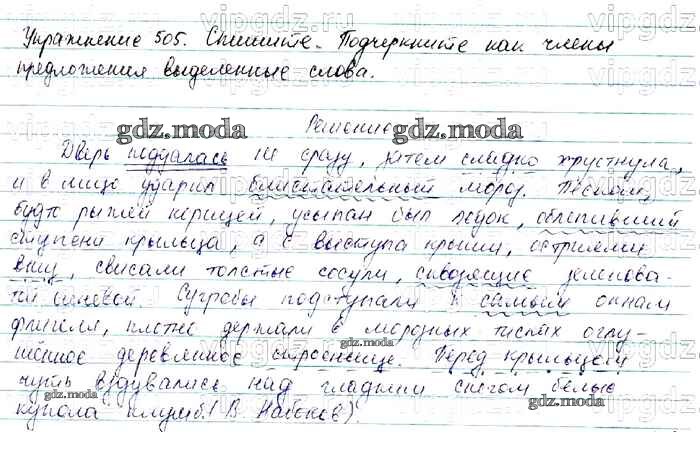 Упражнение 505. Спишите. Подчеркните как члены
предложения выделенные слова.
Решение
gdz.moda gdz.moda
Дверь поддалась не сразу, затем сладко хрустнула,
и в лицо ударил блистательный мороз. Песком,
будто рыжей корицей, усыпан был ледок, облепивший
ступени крыльца, а с выступа крыши, остриями
вниз, свисали толстые сосули, сквозящие зеленова-
той синевой. Сугробы подступали к самым окнам
флигеля, плотно держали в морозных тисках оглу-
шённое деревянное строеньице. Перед крыльцом
gdz.moda gdz.moda
чуть вздувались над гладким снегом белые
купола клумб. (В. Набоков)
gdz.moda gdz.moda